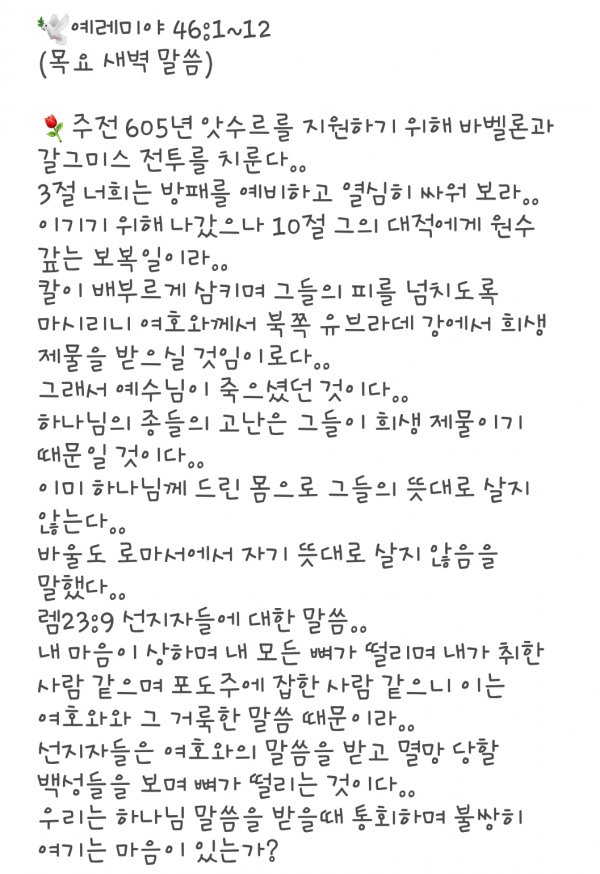 🕊️예레미야 46:1~12
(목요 새벽 말씀)
🌹주전 605년 앗수르를 지원하기 위해 바벨론과
갈그미스 전투를 치룬다。。
3절 너희는 방패를 예비하고 열심히 싸워 보라。。
이기기 위해 나갔으나 10절 그의 대적에게 원수
갚는 보복일이라。。
칼이 배부르게 삼키며 그들의 피를 넘치도록
마시리니 여호와께서 북쪽 유브라데 강에서 희생
제물을 받으실 것임이로다。。
그래서 예수님이 죽으셨던 것이다。。
하나님의 종들의 고난은 그들이 희생 제물이기
때문일 것이다。。
이미 하나님께 드린 몸으로 그들의 뜻대로 살지
않는다。。
바울도 로마서에서 자기 뜻대로 살지 않음을
말했다。。
렘23:9 선지자들에 대한 말씀。。
내 마음이 상하며 내 모든 뼈가 떨리며 내가 취한
사람 같으며 포도주에 잡한 사람 같으니 이는
여호와와 그 거룩한 말씀 때문이라。。
선지자들은 여호와의 말씀을 받고 멸망 당할
백성들을 보며 뼈가 떨리는 것이다。。
우리는 하나님 말씀을 받을때 통회하며 불쌍히
여기는 마음이 있는가?